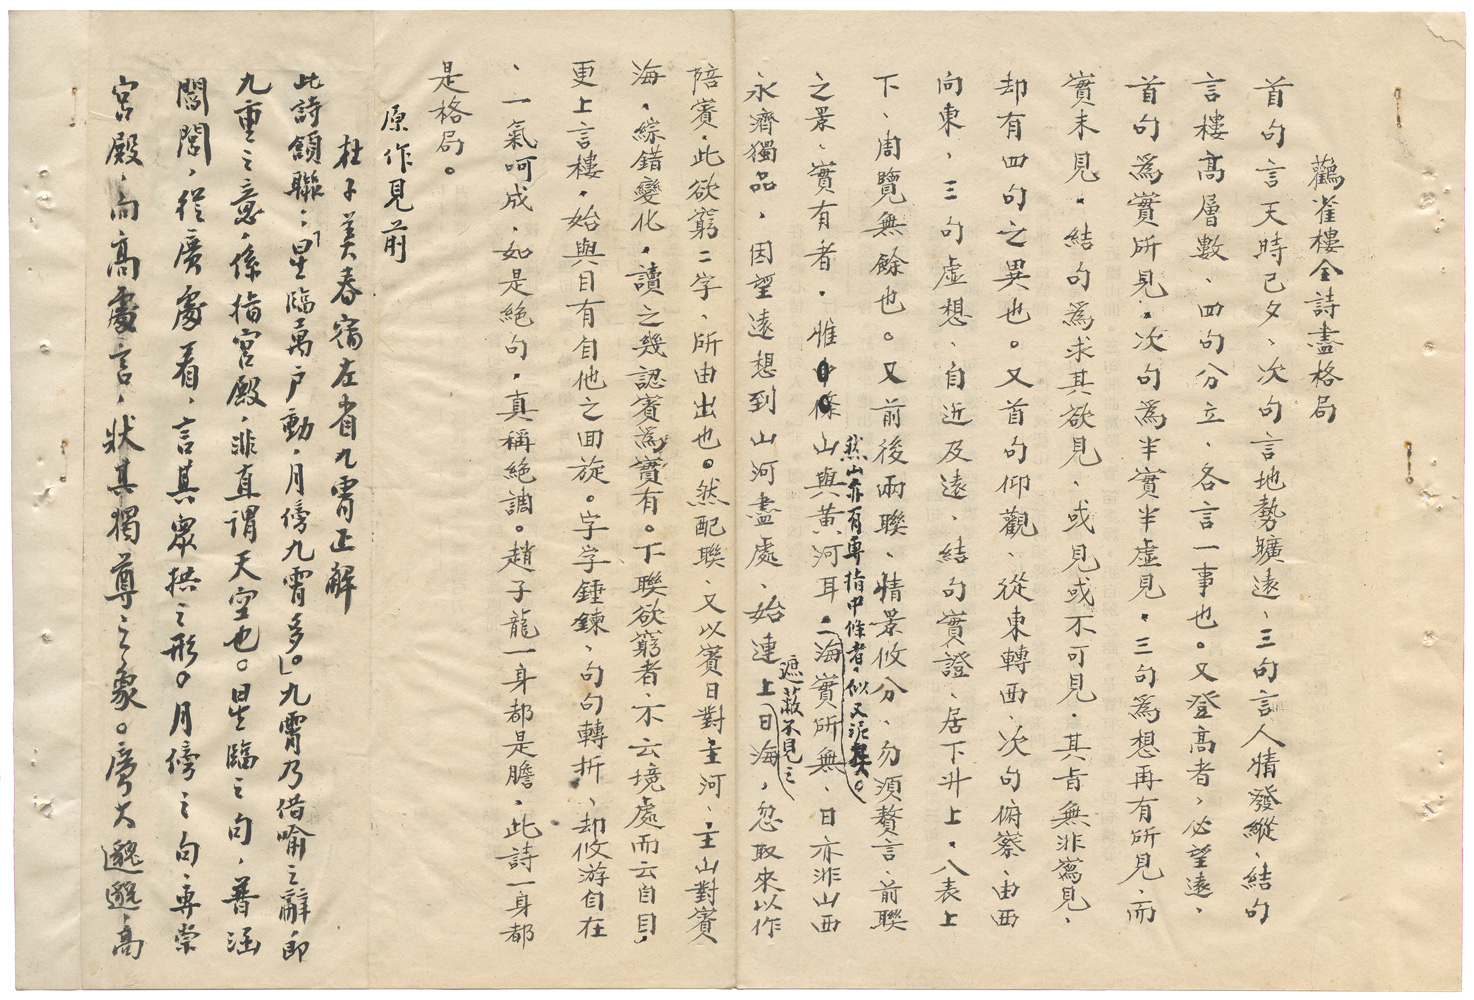 鸛雀樓全詩盡格局
首句言天時已夕、次句言地勢曠遠、三句言人情潑縱、結句
言樓高層數、四句分立、各言一事也。又登高者、必望遠、
首句爲實所見、次句爲半實半虛見、三句爲想再有所見、而
實未見、結句爲求其欲見、或見或不可見、其旨無非寫見、
却有四句之異也。又首句仰觀、從東轉西、次句俯察、由西
向東、三句虛想、自近及遠、結句實證、居下升上、八表上
下、周覽無餘也。又前後兩聯、情景攸分、勿須贅言、前聯
然山亦有專指中條者、似又泥矣。
之景、實有者、惟中條山與黃河耳。海實所無、日亦非山西
遮蔽不見之
永濟獨品、因望遠想到山河盡處、始連上日海、忽取來以作
陪賓、此欲窮二字、所由出也。然配聯、又以賓日對主河、主山對賓
海、綜錯變化、讀之幾認賓爲實有。下聯欲窮者、不云境處而云自目、
更上言樓、始與目有自他之回旋。字字錘鍊、句句轉折、却攸游自在
、一氣呵成、如是絕句、真稱絕調。趙子龍一身都是膽、此詩一身都
是格局。
原作見前
杜子美春宿左省九霄正解
此詩頷聯：「星臨萬户動、月傍九霄多。」九霄乃借喻之辭、即
九重之意、係指宮殿、非直謂天空也。星臨之句、普涵
閶閭、從廣處看、言其眾拱之形。月傍之句、專崇
宮殿、向高處言、狀其獨尊之象。廣大邈邈、高